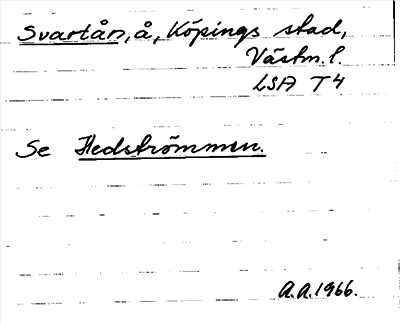 Svartån, å, Köpings stad,
Västm. l.
LSA T4
Se Hedströmmen.
A.A. 1966.